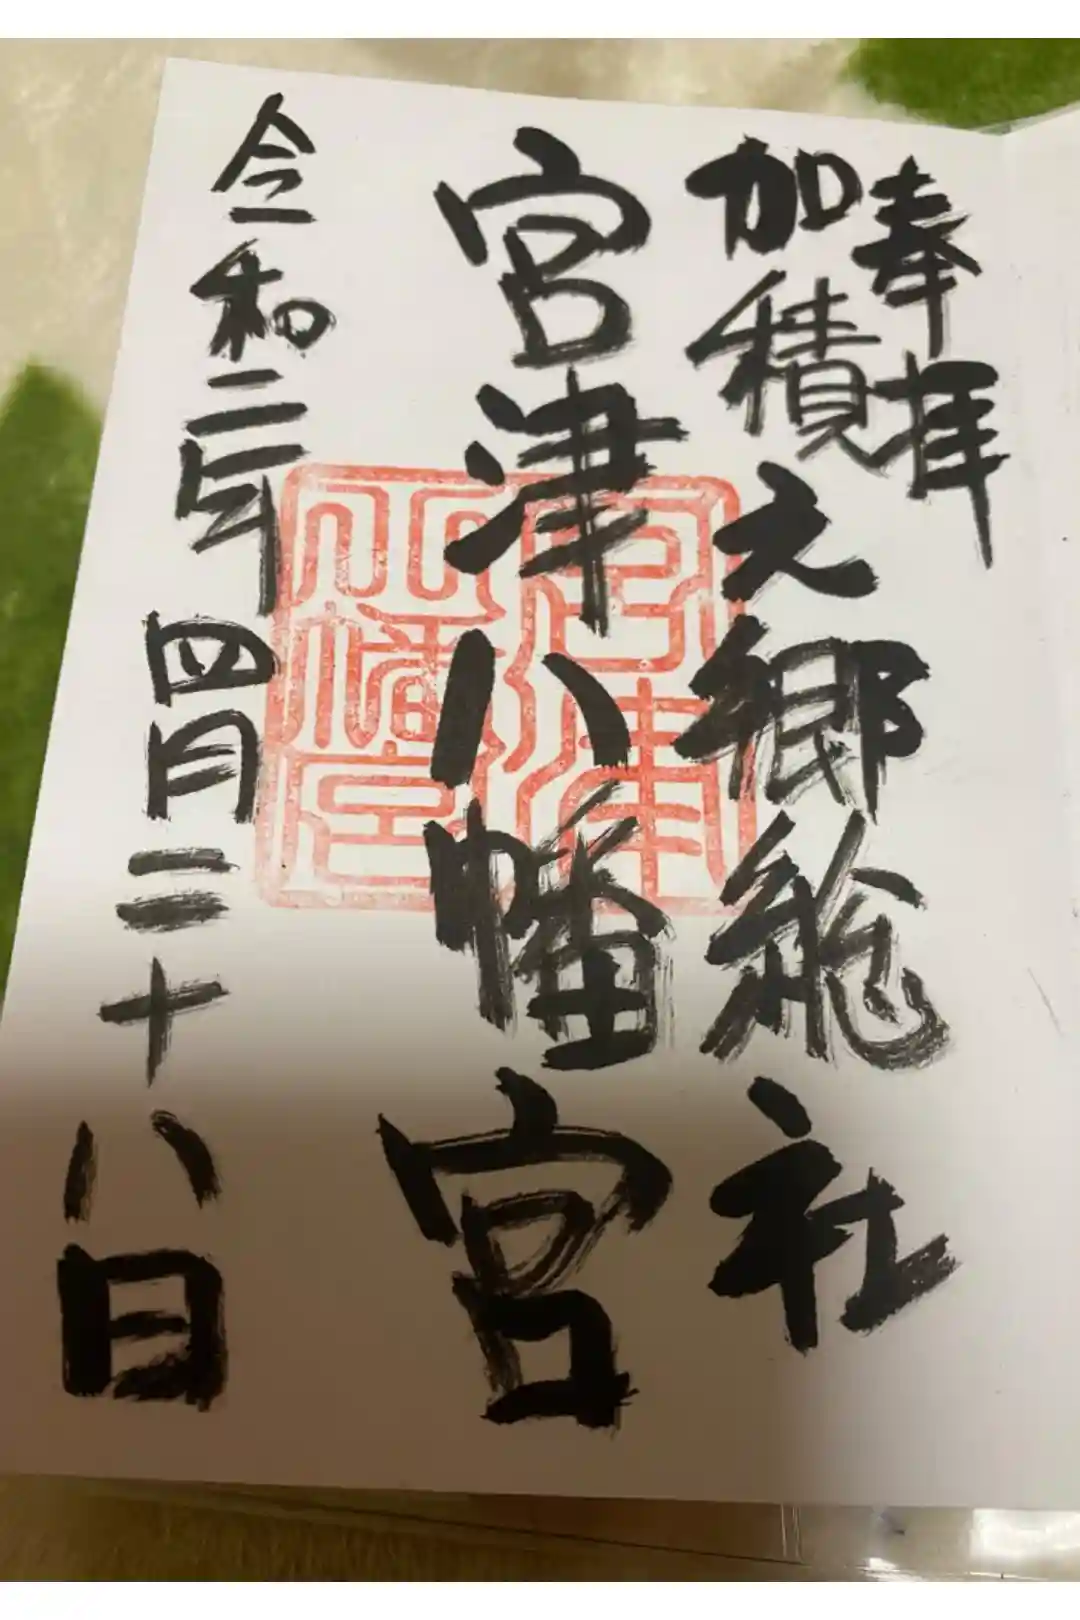 奉拝
加積之郷総社
宮津八幡宮
宮津八幡宮
令和二年四月二十八日